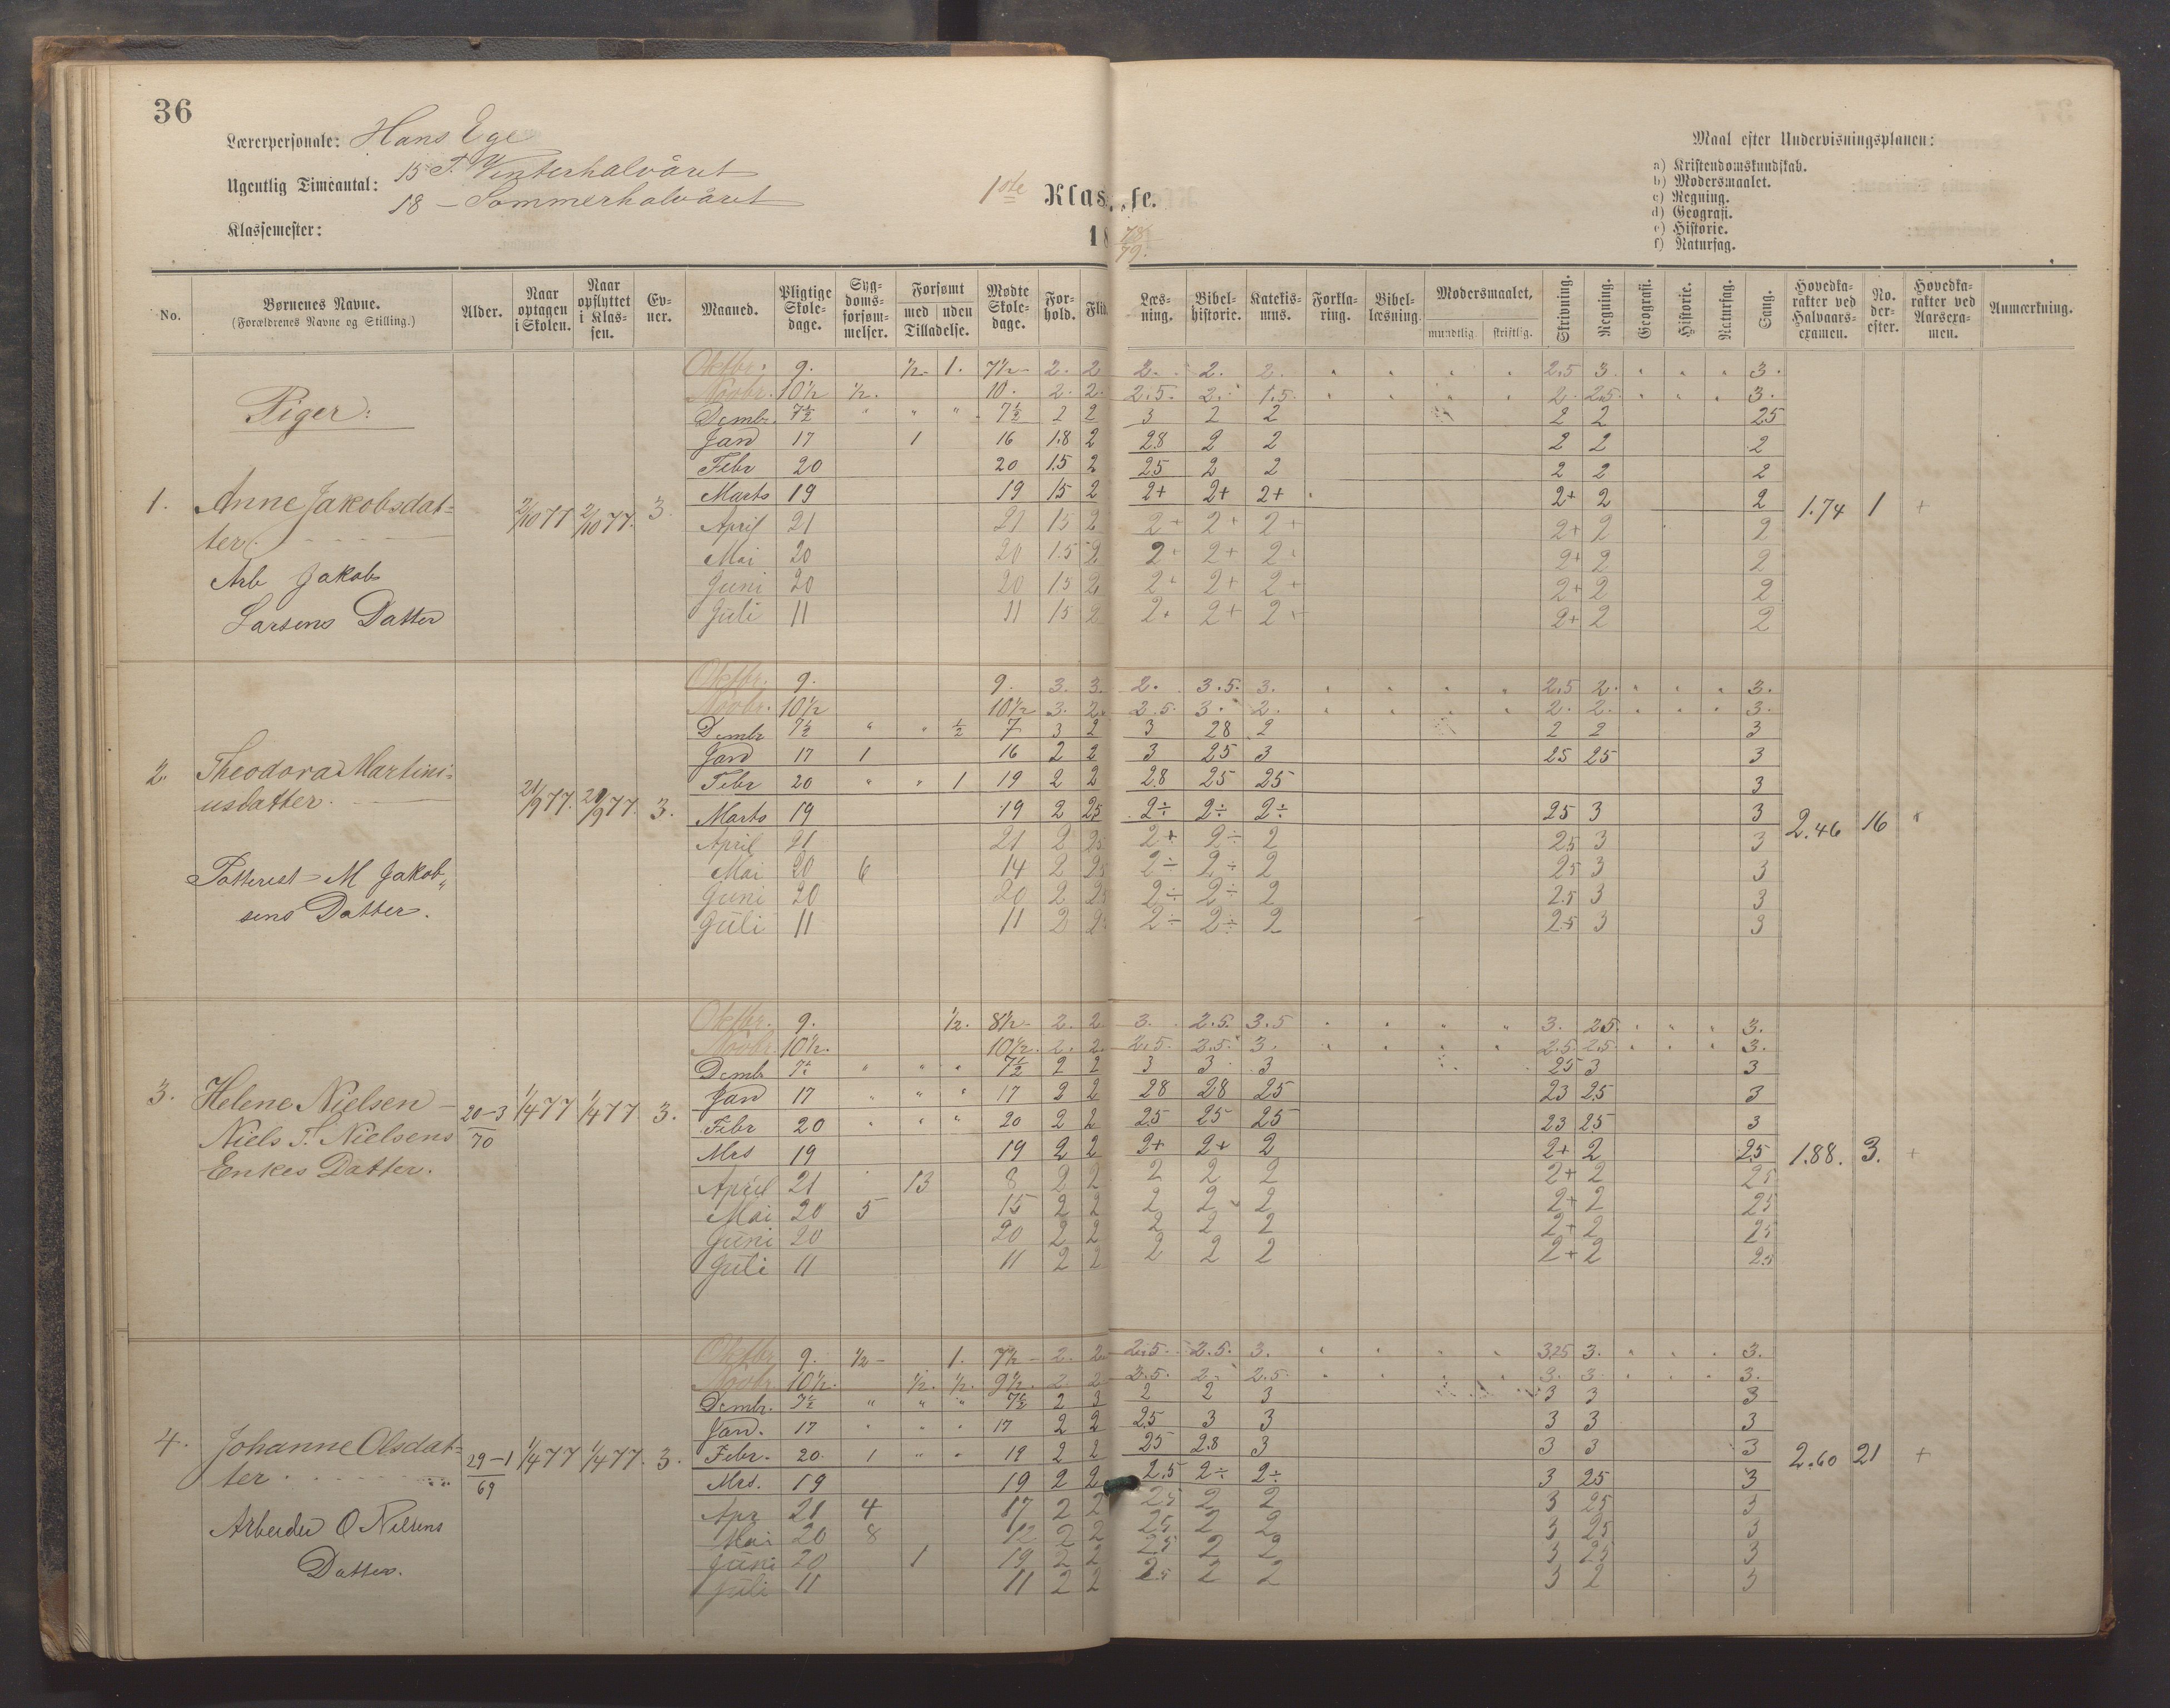 36
Lærerpersonale: Hans Ege
Ugentlig Timeantal: 15 T. Vinterhalvåret
18 – Sommerhalvåret
Klassemester:
1ste Klasse.
18 78/79.
Maal efter Undervisningsplanen:
a) Kristendomskundskab.
b) Modersmaalet.
c) Regning.
d) Geografi.
e) Historie.
f) Naturfag.
No. | Børnenes Navne. (Forældrenes Navne og Stilling.) | Alder. | Naar optagen i Skolen. | Naar opflyttet i Klassen. | Evner. | Maaned. | Pligtige Skoledage. | Sygdomsforsømmelser. | Forsømt med | uden Tilladelse. | Mødte Skoledage. | Forhold. | Flid. | Læsning. | Bibelhistorie. | Katekismus. | Forklaring. | Bibellæsning. | Modersmaalet, mundtlig. | skriftlig. | Skrivning. | Regning. | Geografi. | Historie. | Naturfag. | Sang. | Hovedkarakter ved Halvaarsexamen. | No. derefter. | Hovedkarakter ved Aarsexamen. | Anmærkning.
Piger:
1. Anne Jakobsdat=
ter.
Arb Jakob
Larsens Datter
2/10 77 2/10 77. 3.
Oktbr. 9. ½ 1. 7½ 2. 2 2. 2. 2. 2.5 3. 3.
Novbr. 10½ ½. 10. 2. 2. 2.5. 2. 1.5. 2. 2.5. 3.
Dcmbr. 7½ " " " 7½ 2 2 3 2 2 2 2 25
Jan 17 1 16 1.8 2 28 2 2 2 2 2
Febr 20 20 1.5 2 25 2 2 2 2 2
Marts 19 19 15 2 2+ 2+ 2+ 2+ 2 2
April 21 21 15 2 2+ 2+ 2+ 2+ 2 2
Mai 20 20 1.5 2 2+ 2+ 2+ 2+ 2 2
Juni 20 20 15 2 2+ 2+ 2+ 2+ 2 2
Juli 11 11 15 2 2+ 2+ 2+ 2+ 2 2
1.74 1 +
2. Theodora Martini=
usdatter.
M Jakob„
sens Datter.
21/9 77. 21/9 77. 3.
Oktbr. 9. 9. 3. 3. 2. 3.5. 3. 2.5 2. 3.
Novbr. 10½ 10½ 3. 2. 2.5. 3. 2. 2. 2. 3.
Dcmbr 7½ " " ½ 7 3 2 3 28 2 2 2 3
Jan 17 1 16 2 2 3 25 3 25 25 3
Febr 20 " " 1 19 2 2 28 25 25 3
Marts 19 19 2 25 2÷ 2÷ 2÷ 25 3 3
April 21 21 2 25 2+ 2÷ 2 25 3 3
Mai 20 6 14 2 25 2÷ 2÷ 2 25 3 3
Juni 20 20 2 25 2÷ 2÷ 2 2.5 3 3
Juli 11 11 2 2 2÷ 2÷ 2 25 3 3
2.46 16
3. Helene Nielsen
Niels T. Nielsens
Enkes Datter.
20–3/70 1/4 77 1/4 77 3.
Oktbr. 9. ½. 8½ 2. 2. 3. 2.5. 3.5 3. 2.5. 3.
Novbr. 10½. 10½. 2. 2. 2.5. 3.5. 3. 2.5. 2.5. 3.
Dcmbr 7½ " " " 7½ 2 2 3 3 3 25 3 3
Jan 17 " " " 17 2 2 28 28 25 23 25 3
Febr 20 " " " 20 2 2 25 25 25 23 25 3
Mrs 19 19 2 2 2+ 2+ 2 2+ 2 25
April 21 13 8 2 2 2 2 2 2+ 2 25
Mai 20 5 15 2 2 2 2 2 2+ 2 25
Juni 20 20 2 2 2 2 2 2+ 2 25
Juli 11 11 2 2 2 2 2 2+ 2 2.5
1.88. 3. +
4. Johanne Olsdat=
ter.
Arbeider O Nilsens
Datter.
29–1/69 1/4 77 1/4 77. 3.
Oktbr 9. ½ 1. 7½ 2. 2. 2.5. 2.5. 3. 3.25 3. 3.
Novbr. 10½. ½. ½. 9½. 2. 2 3.5. 2. 2.5. 3. 3. 3.
Dcmbr. 7½ " " " 7½ 2 3 2 2 3 3 3 3
Jan. 17 " " " 17 2 2 25 3 3 3 3 3
Febr. 20. 1 " " 19 2 2 25 2.8 3 3 3 3
Mrs. 19 19 2 2 2.5 2÷ 2÷ 3 25 3
Apr 21 4 17 2 2 25 2 2 3 25 3
Mai 20 8 12 2 2 25 2 2 3 25 3
Juni 20 1 19 2 2 25 2 2 3 25 3
Juli 11 11 2 2 2.5 2 2 3 2 3
2.60 21 +